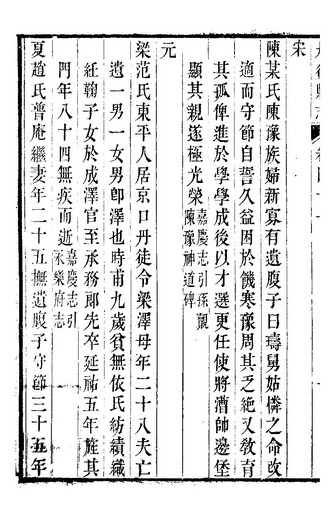 宋
陳某氏陳豫族婦新寡有遺腹子曰壽舅姑憐之命改
適而守節自誓久益困於饑寒豫周其乏絶又敎育
其孤俾進於學學成後以才選更任使將漕帥邊堡
顯其親遂極光榮嘉慶志引孫覿陳豫神道碑
元
梁范氏東平人居京口丹徒令梁澤母年二十八夫亡
遺一男一女男卽澤也時甫九歲貧無依氏紡績織
紝鞠子女於成澤官至承務郎先卒延祐五年旌其
門年八十四無疾而逝嘉慶志引永樂府志
夏趙氏普庵繼妻年二十五撫遺腹子守節三十五年